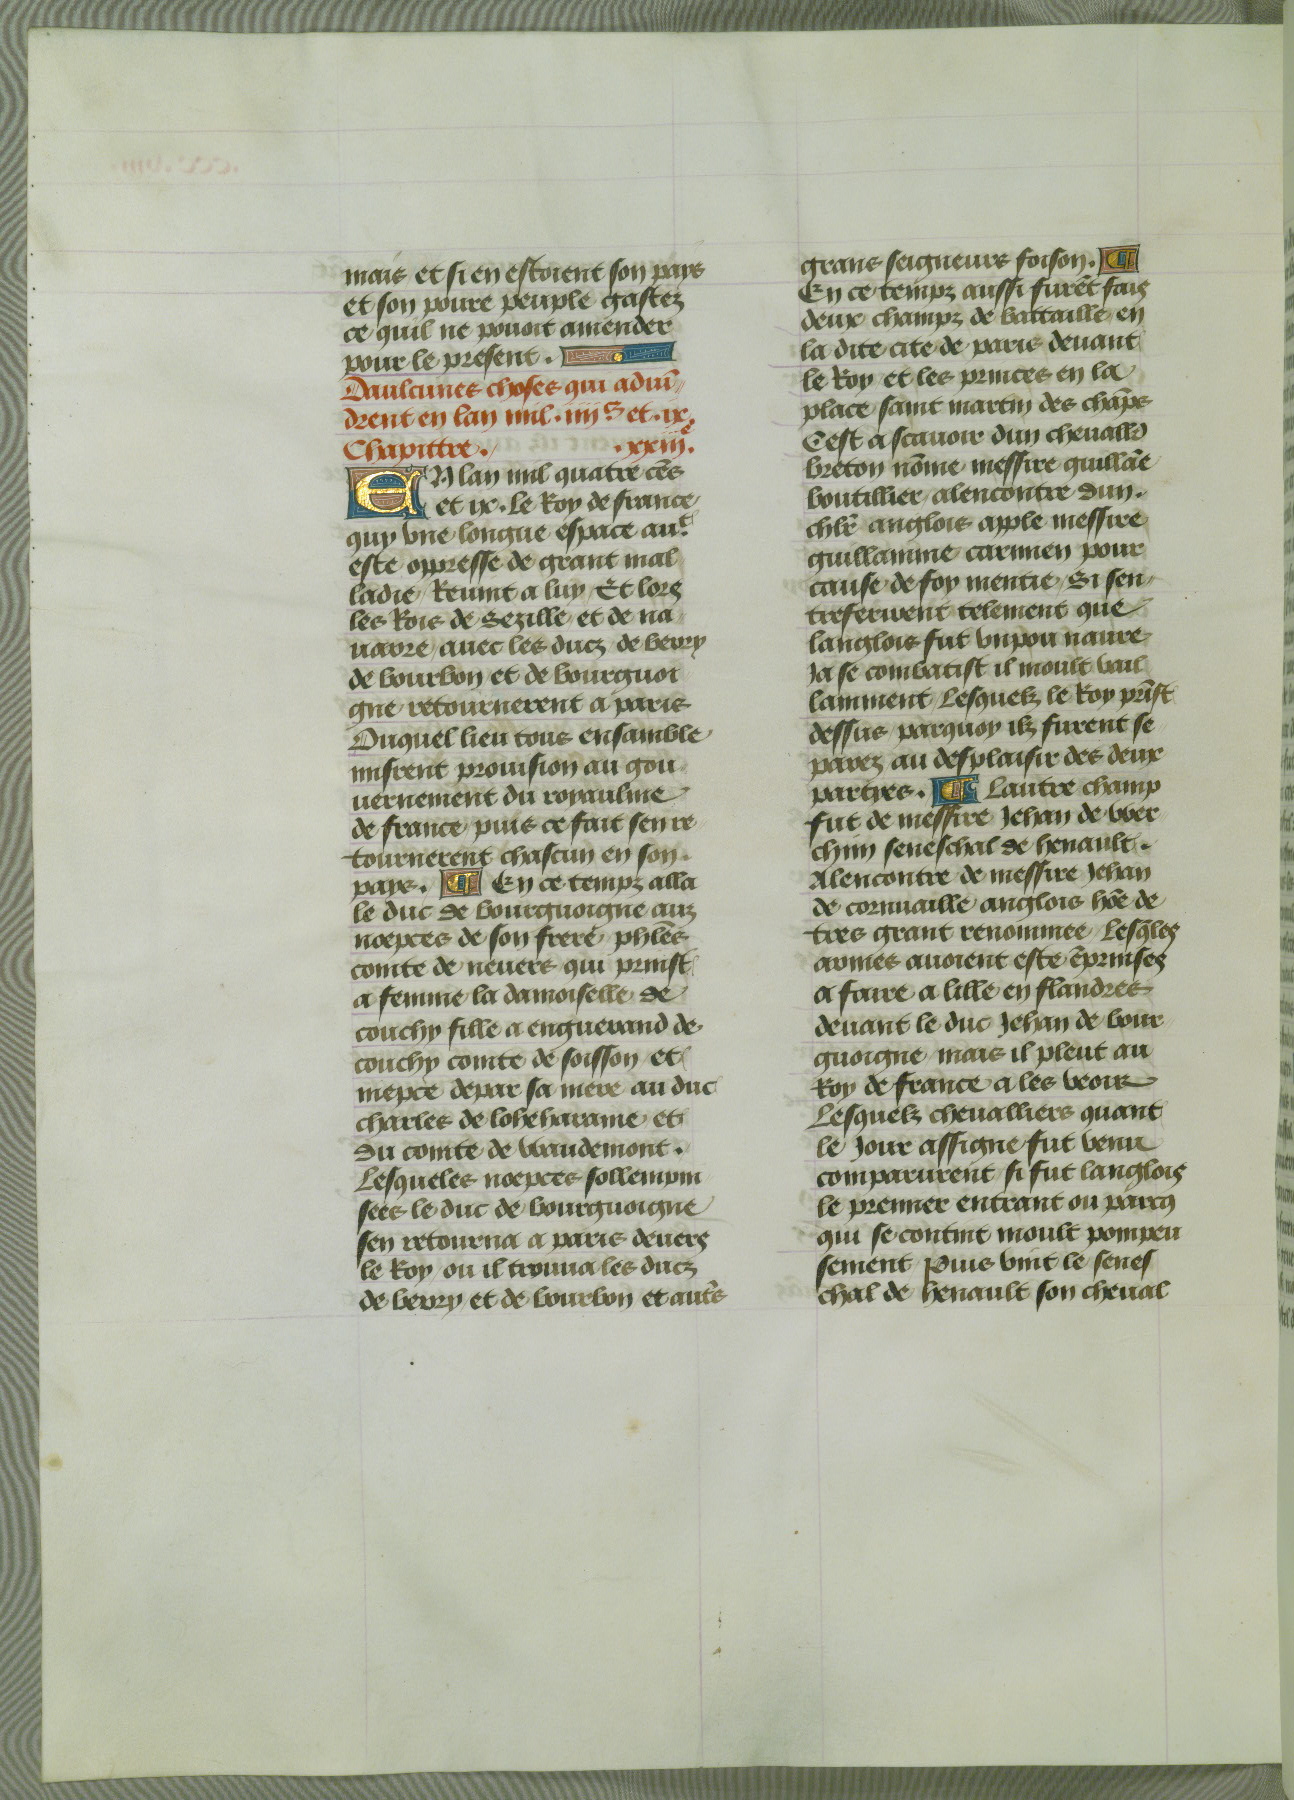 mais et si en estoient son pays
et son poure peuple gastez
ce quil ne pouoit amender
pour le present .
Daulcunes choses qui aduiñ
drent en lan mil . iiii C et . ix.
Chapittre . . xxiiie.
EN lan mil quatre cẽs
et ix . Le Roy de france
quy vne longue espace auoit
este oppresse de grant mal
ladie Reuint a luy Et lors
les Rois de Sezille et de na
uarre auec les ducz de berry
de bourbon et de bourguoi
gne retournerent a paris
Ouquel lieu tous ensamble
misrent prouision au gou
uernement du royaulme
de france puis ce fait sen re
tournerent chascun en son
pays . ¶ En ce temps alla
le duc de bourguoigne auz
noepces de son frere phl̃es
comte de neuers qui prinst
a femme la damoiselle de
couchy fille a enguerand de
couchy comte de soisson et
niepce depar sa mere au duc
charles de loheharaine et
du comte de waudemont .
Lesqueles noepces sollempni
sees le duc de bourguoigne
sen retourna a paris deuers
le Roy ou il trouua les ducz
de berry et de bourbon et autr̃s
grans seigneurs foison . ¶
En ce temps aussi furẽt fais
deux champz de battaille en
la dite cite de paris deuant
le Roy et les princes en la
place saint martin des chãps
Cest a scauoir dun cheuallr̃
breton nõme messire guillãe
boutillier alencontre dun .
chlr̃ anglois apple messire
guillamme carmien pour
cause de foy mentie Si sen
treferirent telement que
langlois fut vnpou naure
Ja se combatist il moult vail
lamment Lesquelz le Roy prĩst
dessus parquoy ilz furent se
parez au desplaisir des deux
partyes . ¶ Lautre champ
fut de messire Jehan de wer
chin seneschal de henault .
Alencontre de messire Jehan
de cornuaille anglois hõe de
tres grant renommee Lesq̃les
armes auoient este ẽprinses
a faire a lille en flandres
deuant le duc Jehan de bour
guoigne mais il pleut au
Roy de france a les veoir
Lesquelz cheualliers quant
le Jour assigne fut venu
comparurent si fut langlois
le premier entrant ou parcq
qui se contint moult pompeu
sement Puis vint le senes
chal de henault son cheual